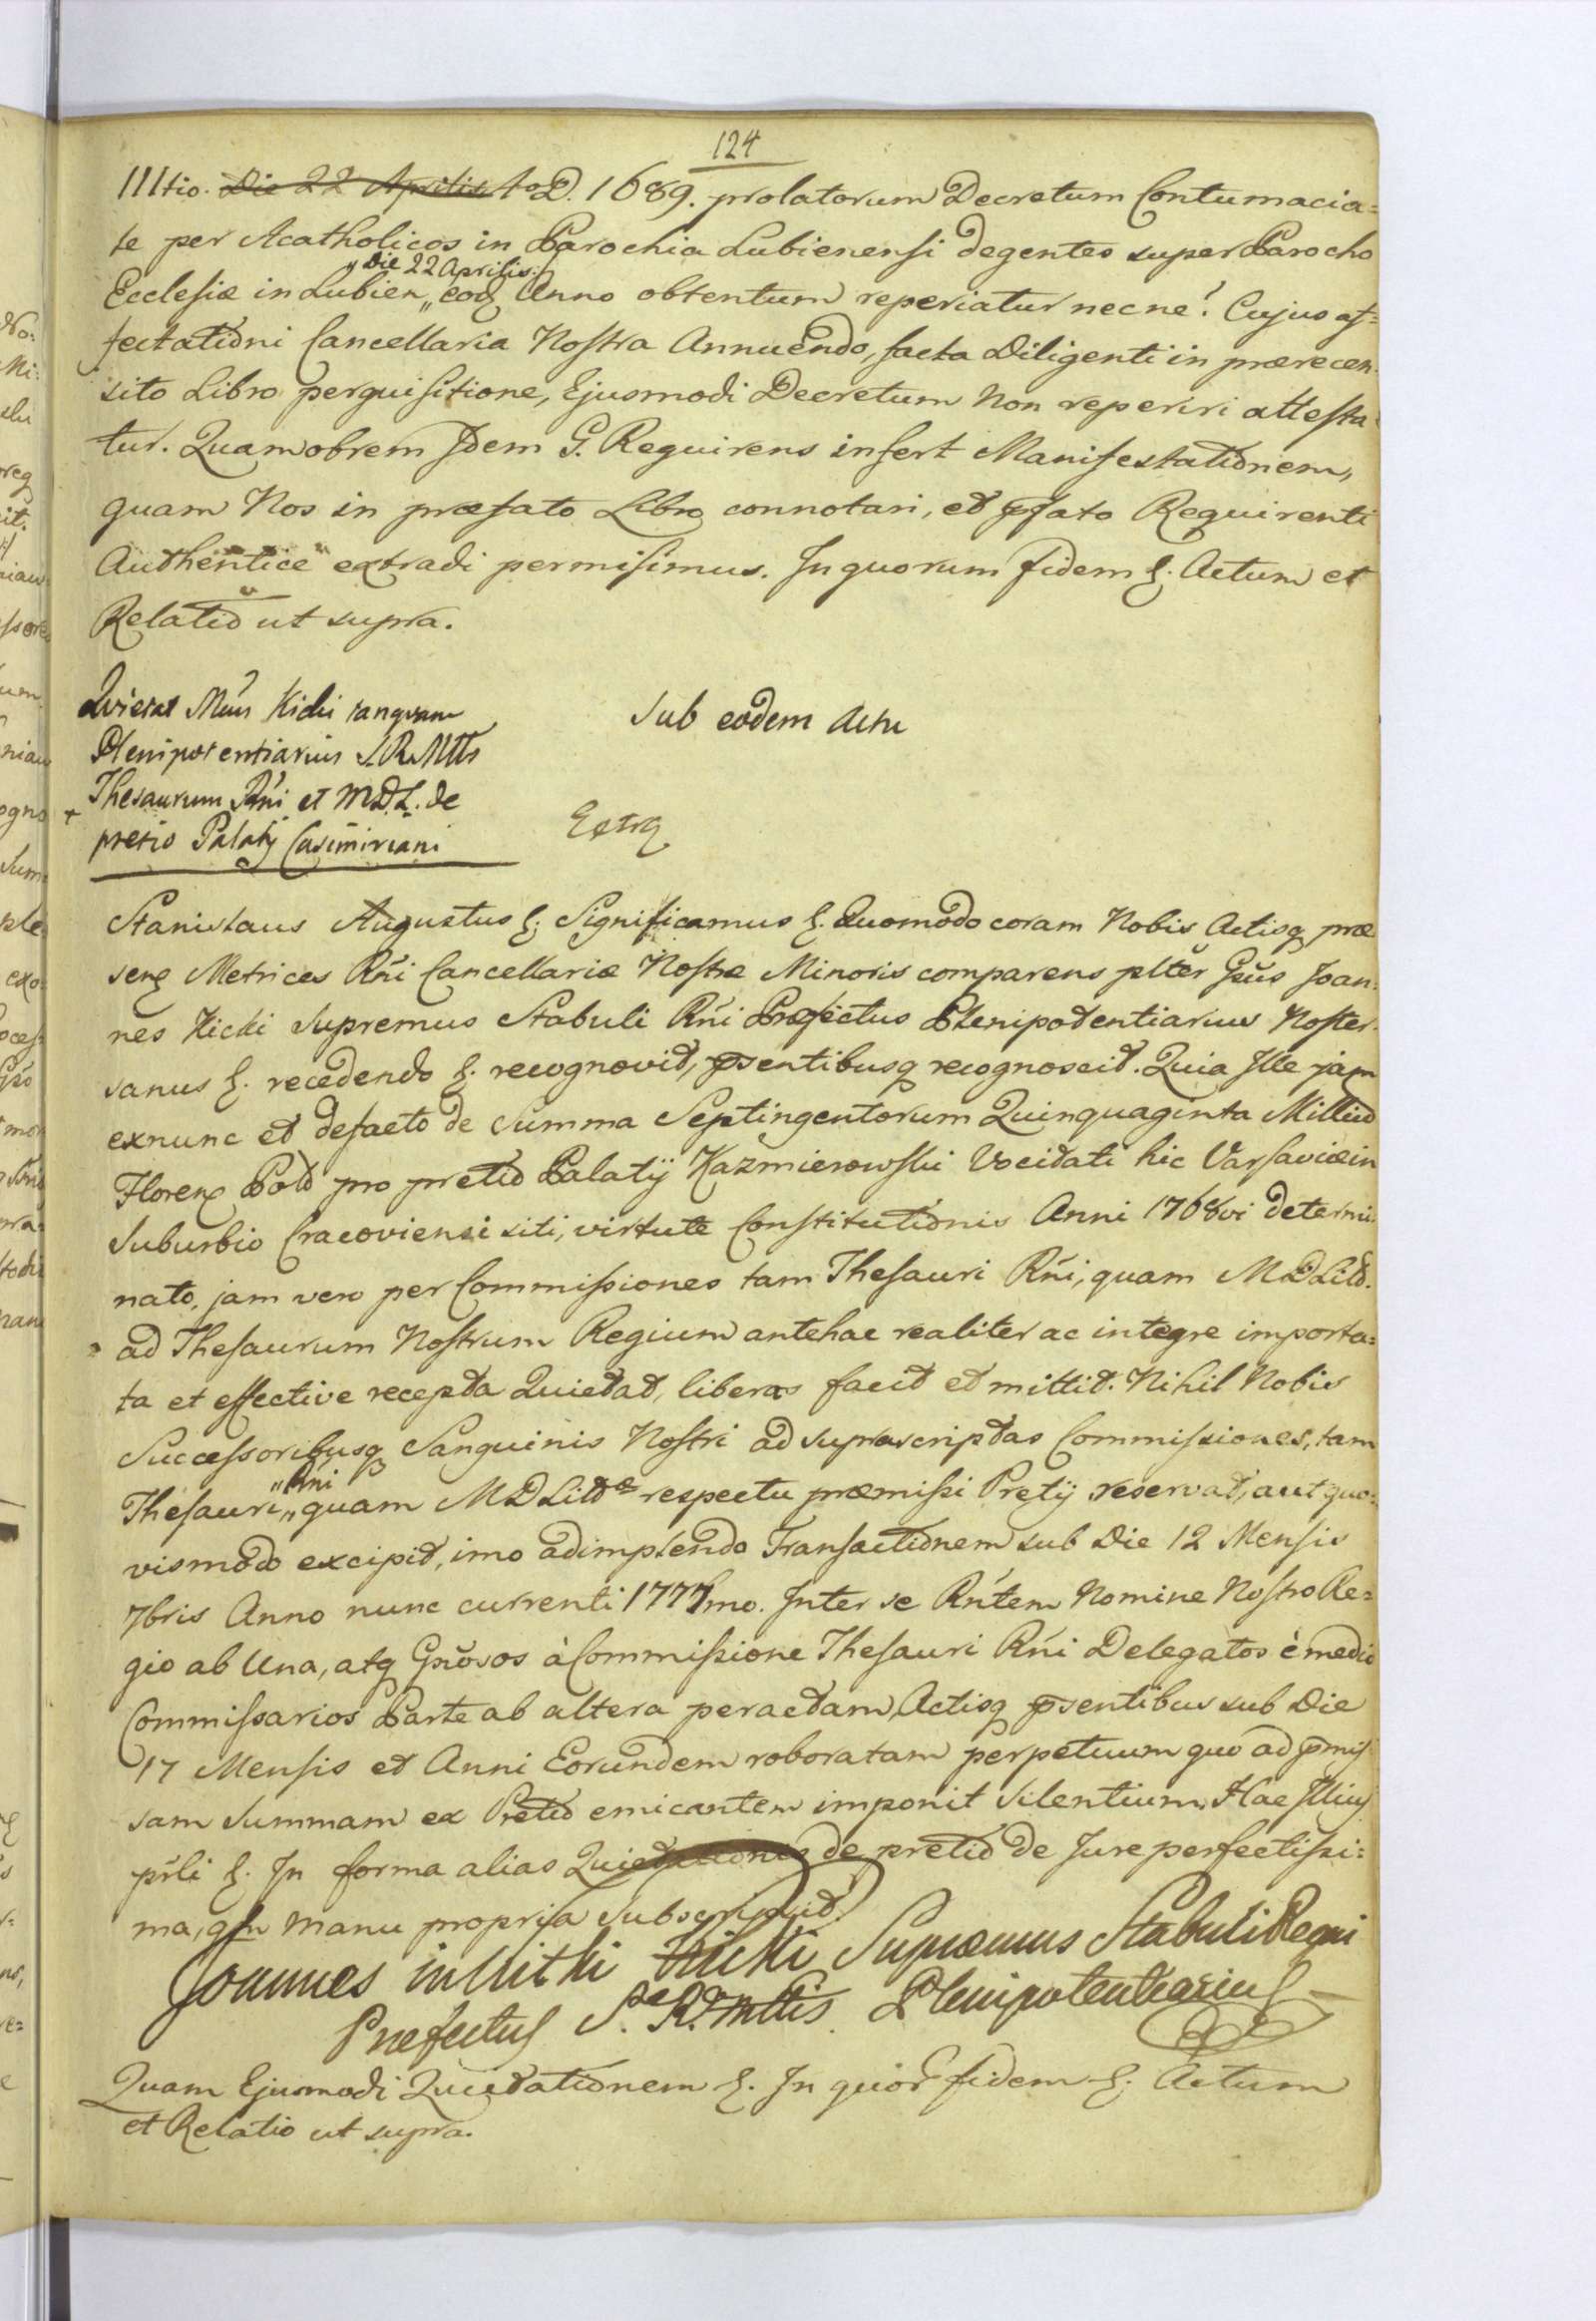 124
IIItio. Die 22 Aprilis AoD. 1689. prolatorum Decretum Contumacia=
te per Acatholicos in Parochia Lubienensi degentes super Parocho
„Die 22 Aprilis.
Ecclesiæ in Lubien „ eodq Anno obtentum reperiatur nec ne? Cujus af=
fectationi Cancellaria Nostra Annuendo, facta Diligenti in prærecen=
sito Libro perquisitione, Ejusmodi Decretum Non reperiri attesta=
tur. Quamobrem Idem G. Requirens infert Manifestationem,
quam Nos in præfato Libro connotari, et pfato Requirenti
Authentice extradi permisimus. In quorum fidem &. Actum et
Relatio ut supra.
Quietat Mcus Kicki tanqvam
Plenipotentiarius S.R.Mttis
Thesaurum Rni et M.D.L. de
pretio Palatij Casimiriani
Sub eodem Actu
Extrq
Stanislaus Augustus &. Significamus &. Quomodo coram Nobis Actisq præ
senq Metrices Rni Cancellariæ Nostræ Minoris comparens plter Gsus Joan=
nes Kicki Supremus Stabuli Rni Præfectus Plenipotentiarius Noster
sanus &. recedendo &. recognovit, psentibusq recognoscit. Quia Ille jam
exnunc et defacto de Summa Septingentorum Quinquaginta Millium
Florenq Pol pro pretio Palatij Kazmierowski Vocitati hic Varsaviæ in
Suburbio Cracoviensi siti, virtute Constitutionis Anni 1768vi determi=
nato, jam vero per Commissiones tam Thesauri Rni, quam MDLit.
ad Thesaurum Nostrum Regium antehac realiter ac integre importa=
ta et effective recepta Quietat, liberas facit et mittit. Nihil Nobis
Successoribusq Sanguinis Nostri ad suprascriptas Commissiones, tam
„Rni
Thesauri „ quam MDLitæ respectu præmissi Pretij reservat, aut quo=
vismodo excipit, imo adimplendo Transactionem sub Die 12 Mensis
7bris Anno nunc currenti 1777mo. Inter se Rntem Nomine Nostro Re=
gio ab Una, atq Gnosos à Commissione Thesauri Rni Delegatos è medio
Commissarios Parte ab altera peractam, Actisq psentibus sub Die
17 Mensis et Anni Eorundem roboratam perpetuum quo ad pmis
sam Summam ex Pretio emicantem imponit Silentium. Hac Illius
prli &. In forma alias Quietationis de pretio de Jure perfectissi=
ma, qm manu propria Subscripsit.
Joannes in Kitki Kicki Supræmus Stabuli Regni
Præfectus S. R. Mttis. Plenipotentiarius
Quam Ejusmodi Quietationem &. In quor fidem &. Actum
et Relatio ut supra.